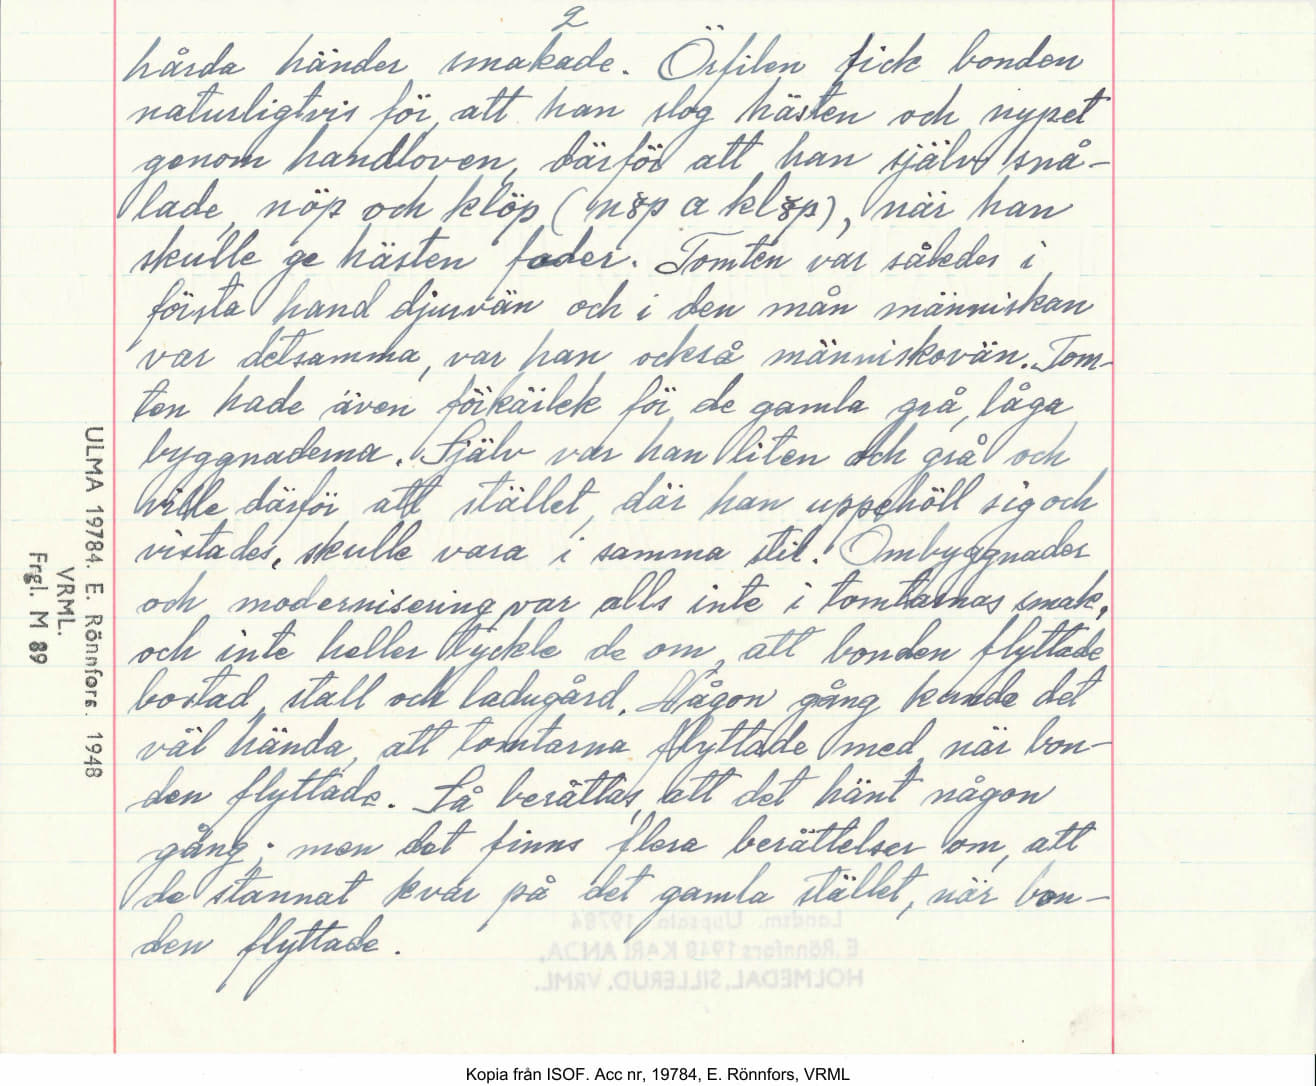 2
hårda händer smakade. Örfilen fick bonden
naturligtvis för, att han slog hästen och nypet
genom handloven, därför att han själv snå-
lade, nöp och klöp (
när han
skulle ge hästen foder. Tomten var således i
första hand djurvän och i den mån människan
var detsamma, var han också människovän. Tom-
ten hade även förkärlek för de gamla grå, låga
byggnaderna. Själv var han liten och grå och
ville därför att stället, där han uppehöll sig och
vistades, skulle vara i samma stil. Ombyggnader
och modernisering var alls inte i tomtarnas smak,
och inte heller tyckte de om, att bonden flyttade
bostad, stall och ladugård. Någon gång kunde det
väl hända, att tomtarna flyttade med, när bon-
den flyttade. Så berättas, att det hänt någon
gång; men det finns flera berättelser om, att
de stannat kvar på det gamla stället, när bon-
den flyttade.
ULMA 19784. E. Rönnfors. 1948
VRML.
Frgl. M 89
Landsm. Uppsala 19784
E. Rönnfors 1948 KARLANDA,
HOLMEDAL, SILLERUD. VRML.
Kopia från ISOF. Acc nr, 19784, E. Rönnfors, VRML